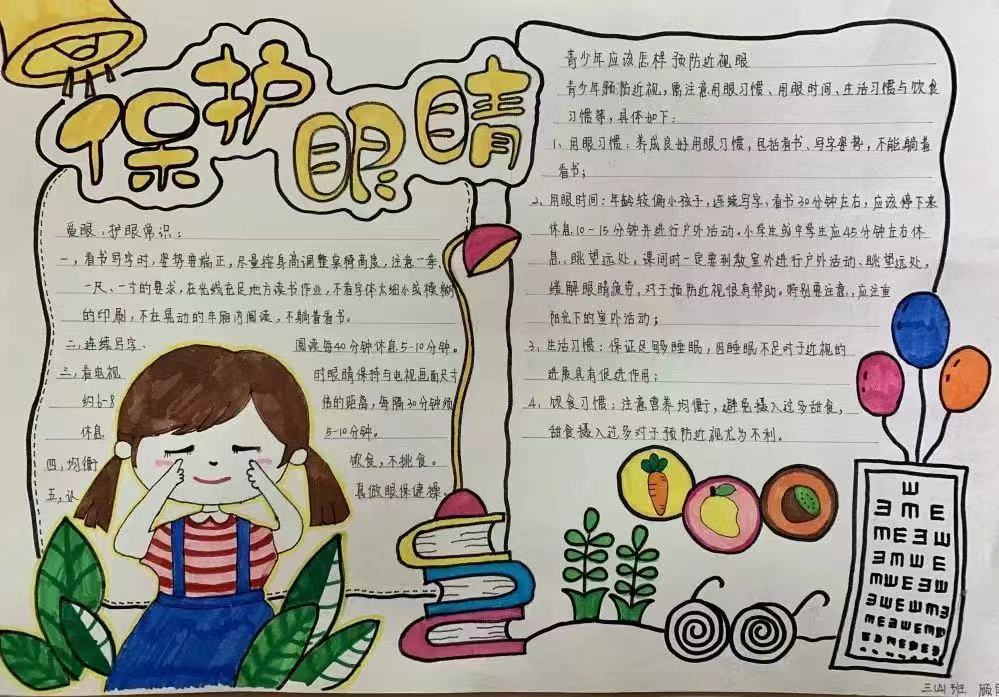 保护眼睛
爱眼、护眼常识：
一，看书写字时，姿势要端正，尽量按身高调整桌椅高度，注意一拳、
一尺、一寸的要求，在光线充足地方读书作业，不看字体太细小或模糊
的印刷，不在晃动的车厢内阅读，不躺着看书。
二，连续写字、阅读每40分钟休息5-10分钟。
三，看电视时眼睛保持与电视画面尺寸
约6-8倍的距离，每隔30分钟须
休息5-10分钟。
四，均衡饮食，不挑食。
五，认真做眼保健操。
青少年应该怎样预防近视眼
青少年预防近视，需注意用眼习惯、用眼时间、生活习惯与饮食
习惯等，具体如下：
1、用眼习惯：养成良好用眼习惯，包括看书、写字姿势，不能躺着
看书；
2、用眼时间：年龄较偏小孩子，连续写字、看书30分钟左右，应该停下来
休息10-15分钟并进行户外活动。小学生或中学生应45分钟左右休
息、眺望远处。课间时一定要到教室外进行户外活动、眺望远处，
缓解眼睛疲劳，对于预防近视很有帮助。特别要注意，应注重
阳光下的室外活动；
3、生活习惯：保证足够睡眠，因睡眠不足对于近视的
进展具有促进作用；
4、饮食习惯：注意营养均衡，避免摄入过多甜食，
甜食摄入过多对于预防近视尤为不利。
三(4)班